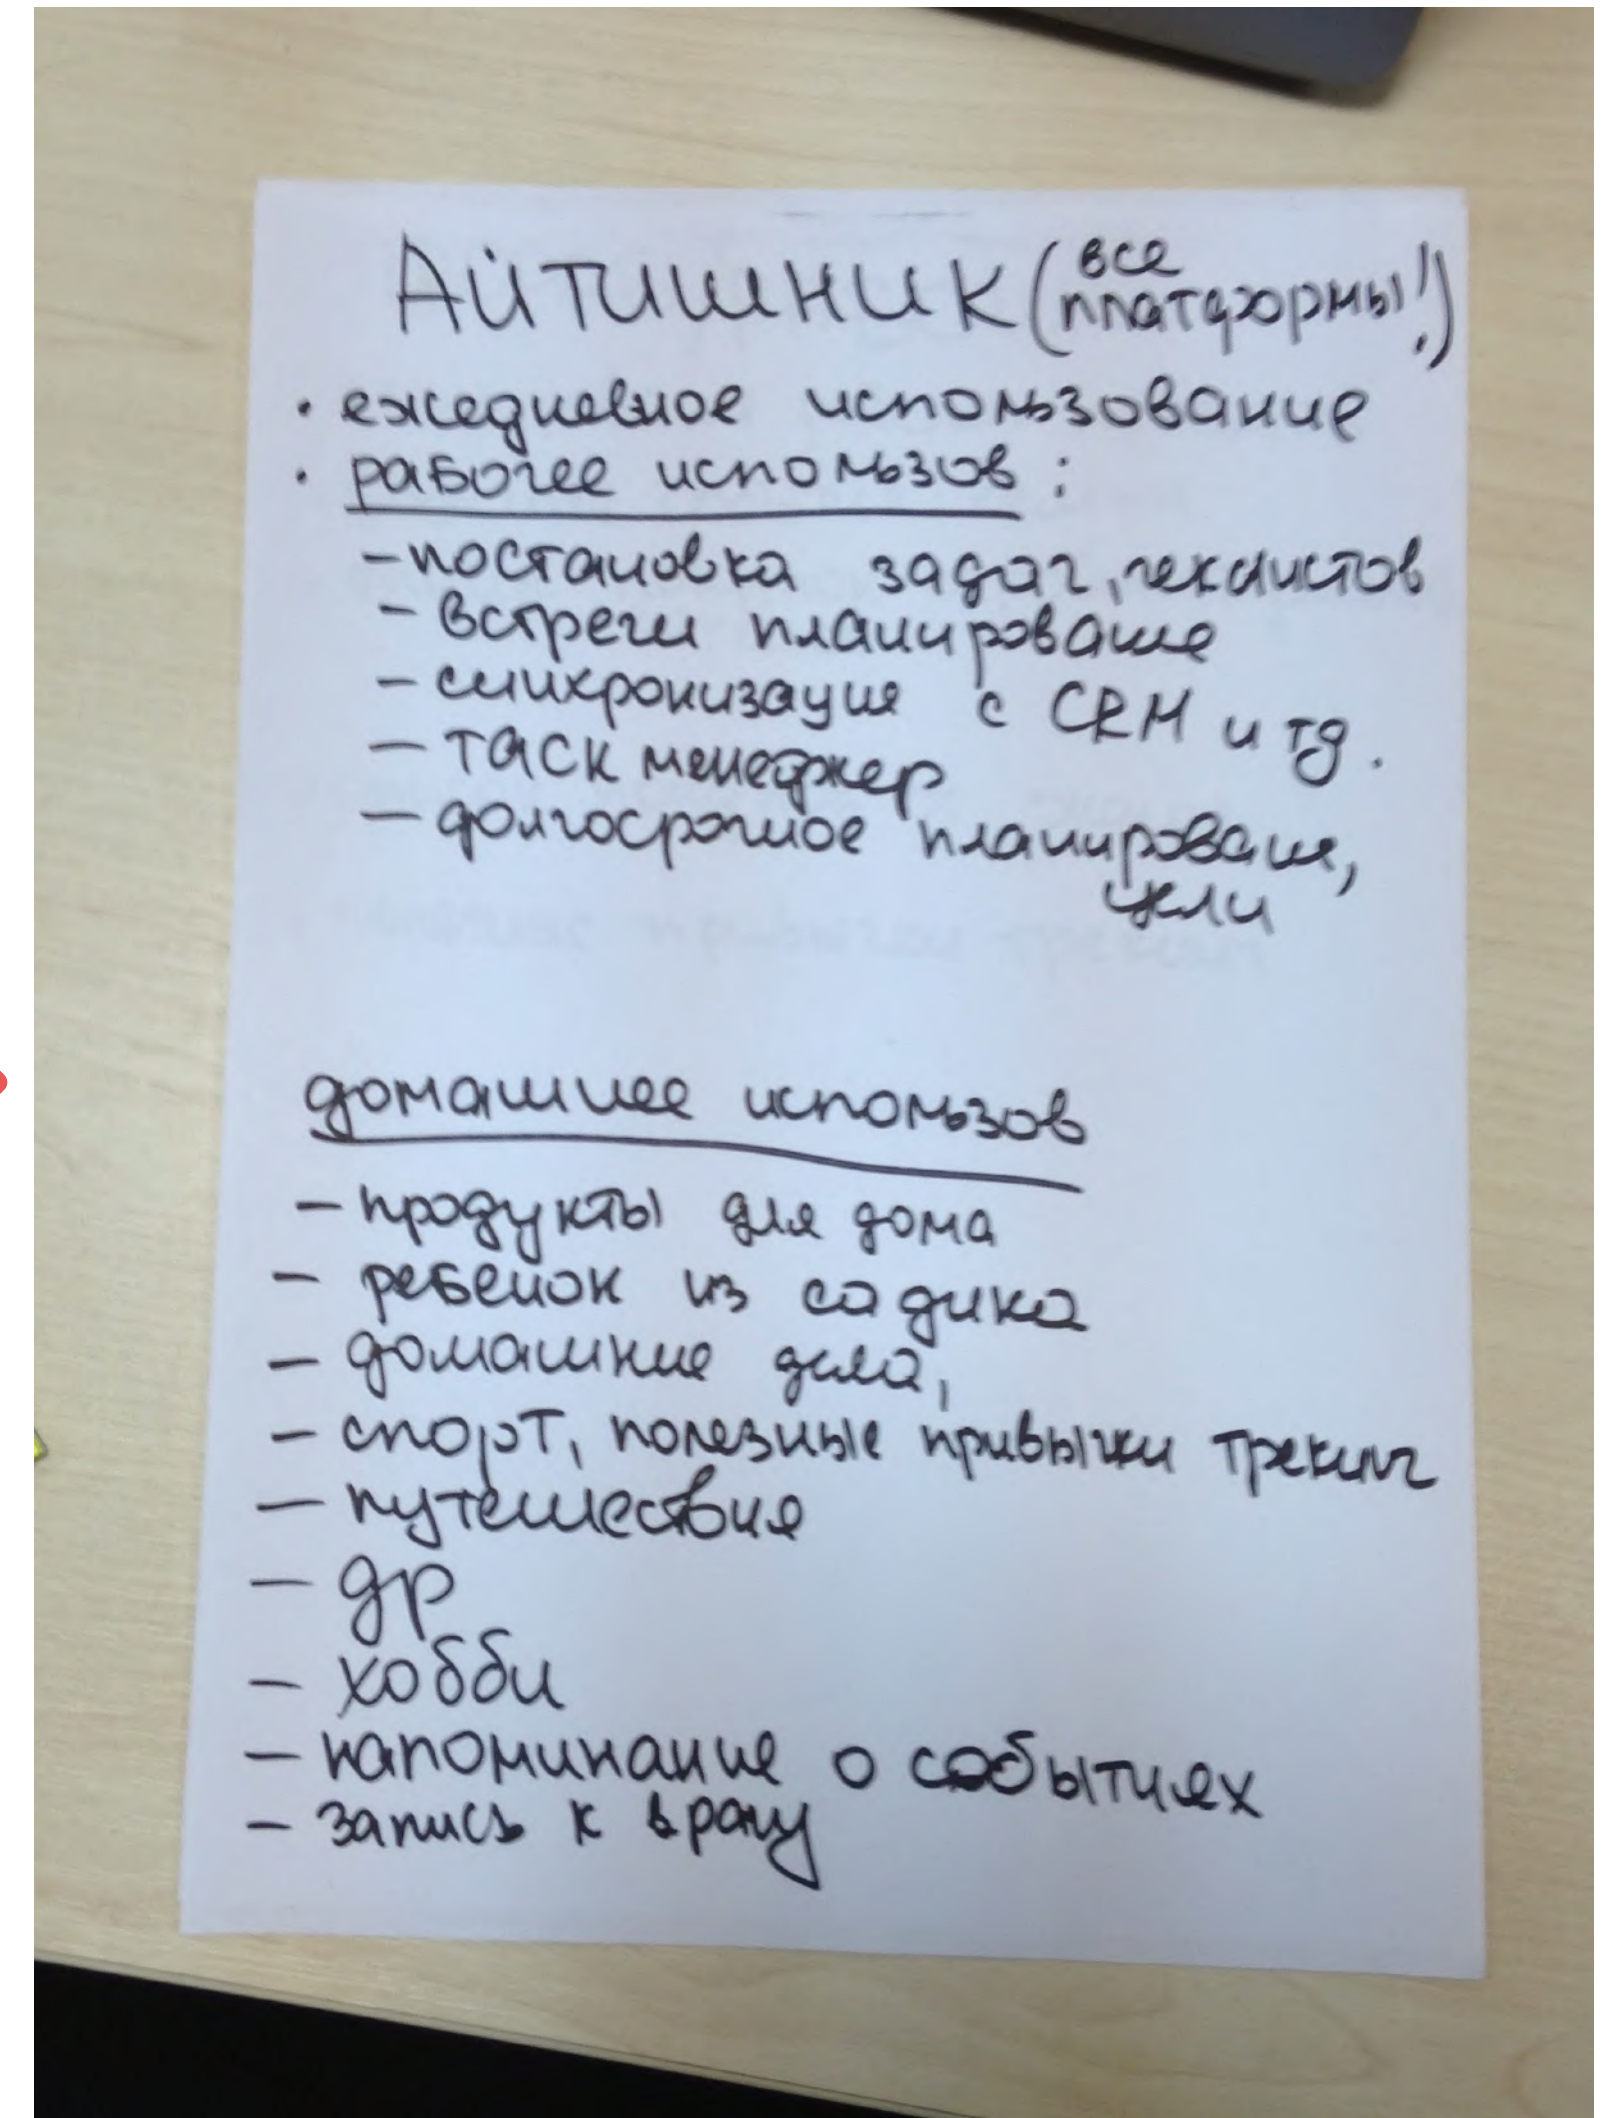 Айтишник (все платформы!)
· ежедневное использование
· рабочее использов:
– постановка задач, чеклистов
– встречи планирование
– синхронизация с CRM и тд.
– таск менеджер
– долгосрочное планирование,
цели
домашнее использов
– продукты для дома
– ребенок из садика
– домашние дела,
– спорт, полезные привычки трекинг
– путешествия
– др
– хобби
– напоминание о событиях
– запись к врачу